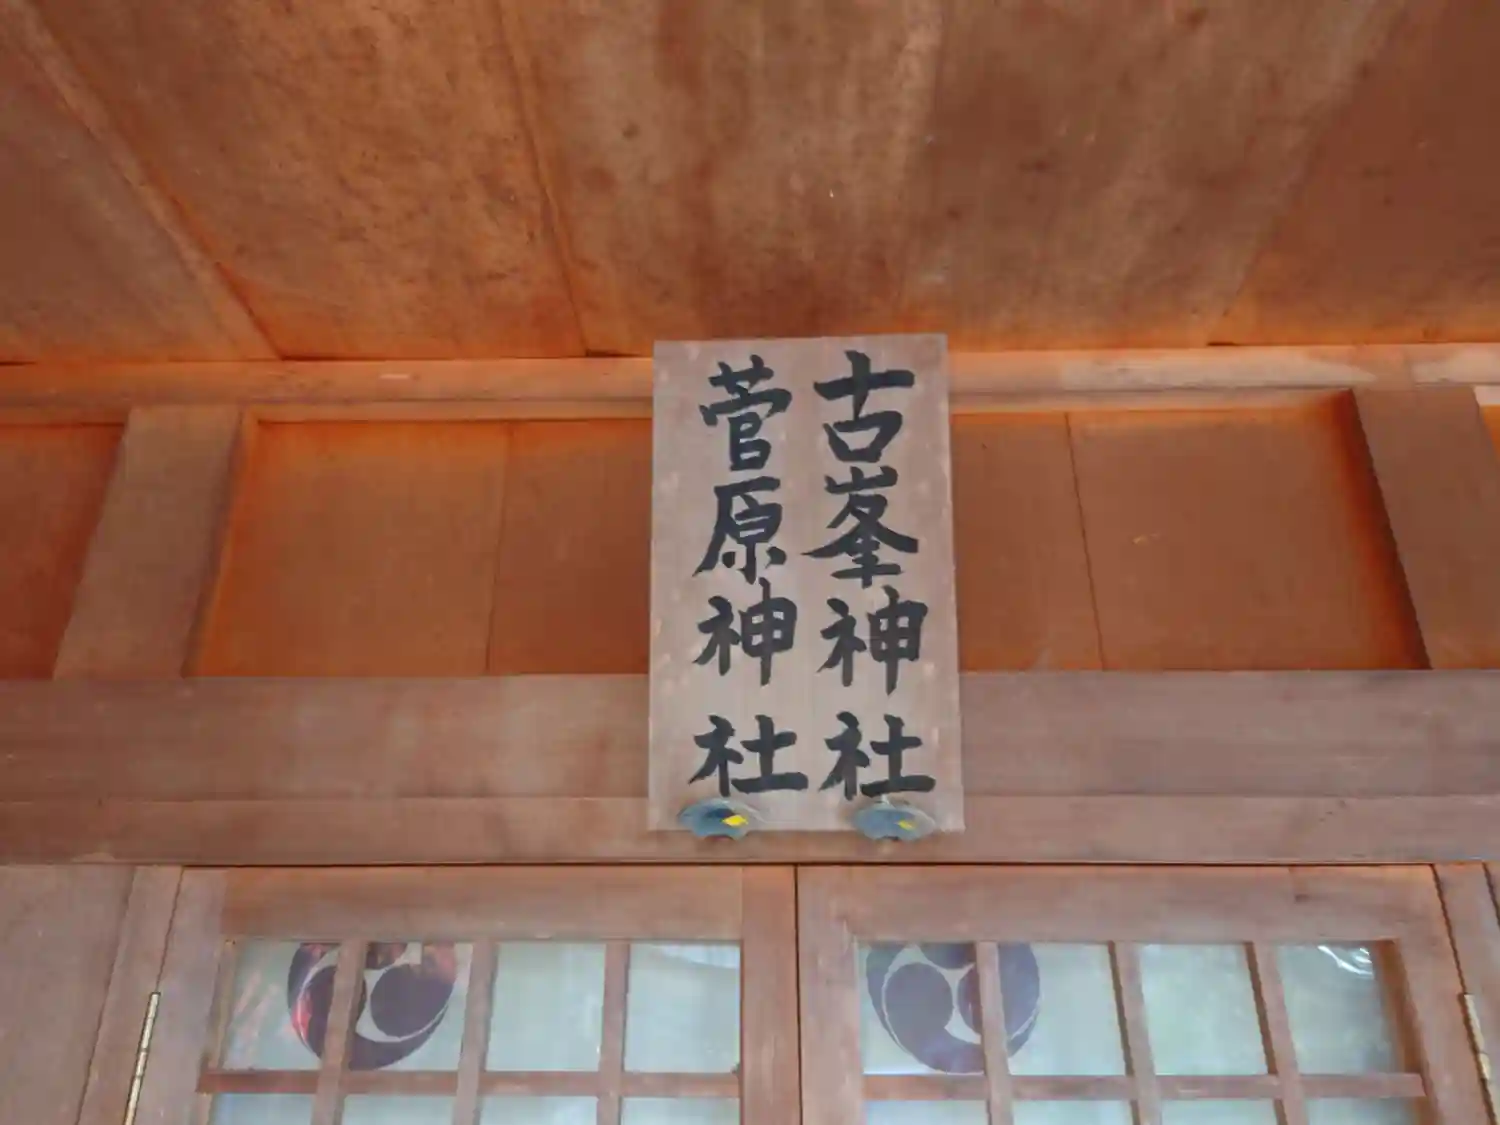 古峯神社
菅原神社